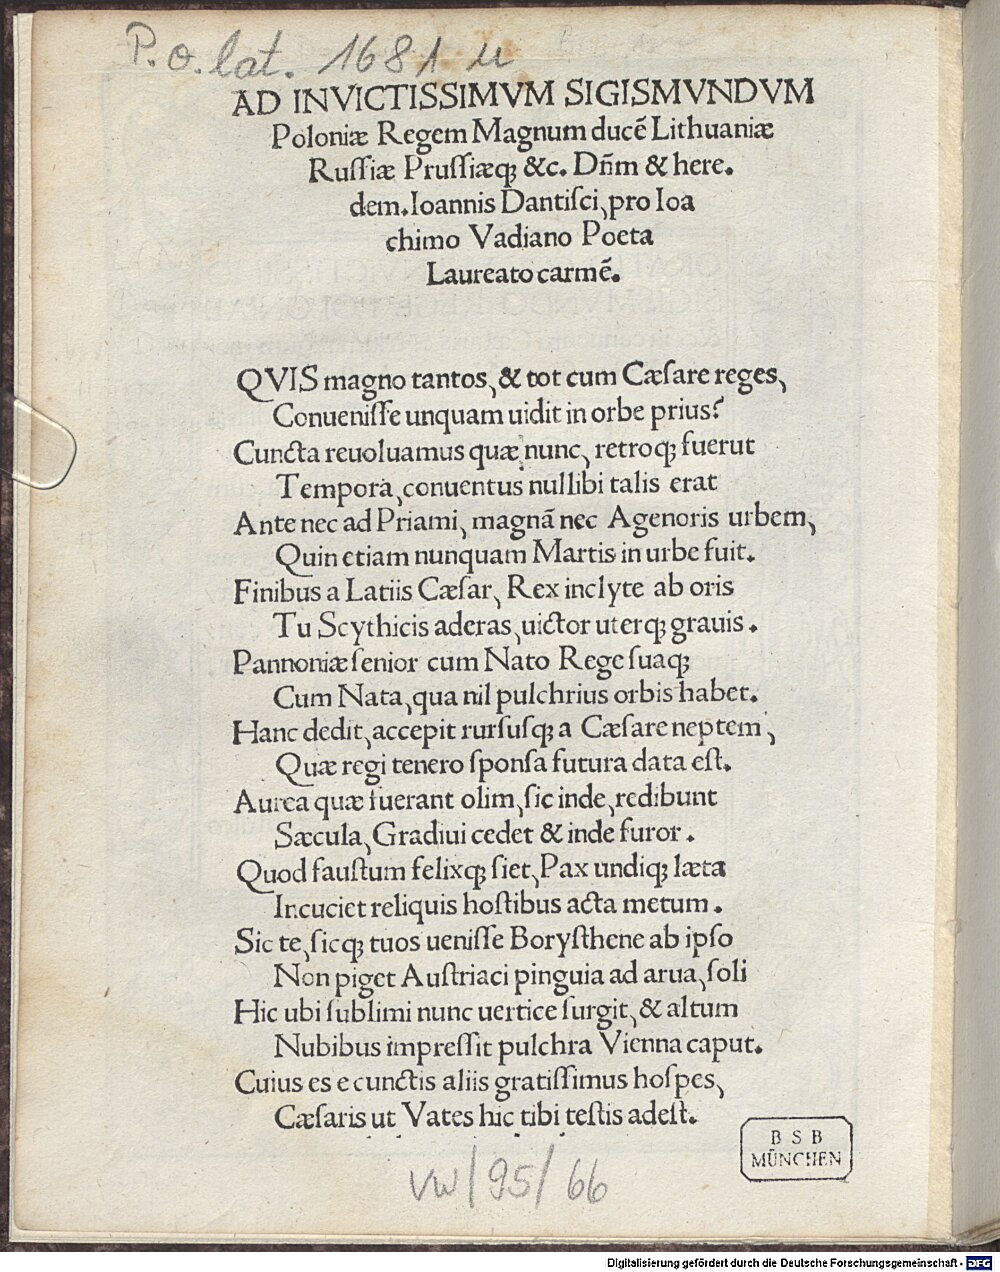 P. o. lat. 1681 u
AD INVICTISSIMVM SIGISMVNDVM
Poloniæ Regem Magnum ducē Lithuaniæ
Ruſſiæ Pruſſiæq; &c. Dn̄m & here.
dem. Ioannis Dantiſci, pro Ioa
chimo Vadiano Poeta
Laureato carmē.
QVIS magno tantos, & tot cum Cæſare reges,
Conueniſſe unquam uidit in orbe prius?
Cuncta reuoluamus quæ nunc, retroq; fuerut
Tempora, conuentus nullibi talis erat
Ante nec ad Priami, magnā nec Agenoris urbem,
Quin etiam nunquam Martis in urbe fuit.
Finibus a Latiis Cæſar, Rex inclyte ab oris
Tu Scythicis aderas, uictor uterq; grauis.
Pannoniæ ſenior cum Nato Rege ſuaq;
Cum Nata, qua nil pulchrius orbis habet.
Hanc dedit, accepit rurſuſq; a Cæſare neptem,
Quæ regi tenero ſponſa futura data eſt.
Aurea quæ fuerant olim, ſic inde, redibunt
Sæcula, Gradiui cedet & inde furor.
Quod fauſtum felixq; ſiet, Pax undiq; læta
Incuciet reliquis hoſtibus acta metum.
Sic te, ſicq; tuos ueniſſe Boryſthene ab ipſo
Non piget Auſtriaci pinguia ad arua, ſoli
Hic ubi ſublimi nunc uertice ſurgit, & altum
Nubibus impreſſit pulchra Vienna caput.
Cuius es e cunctis aliis gratiſſimus hoſpes,
Cæſaris ut Vates hic tibi teſtis adeſt.
B S B
MÜNCHEN
VW/95/66
Digitalisierung gefördert durch die Deutsche Forschungsgemeinschaft - DFG